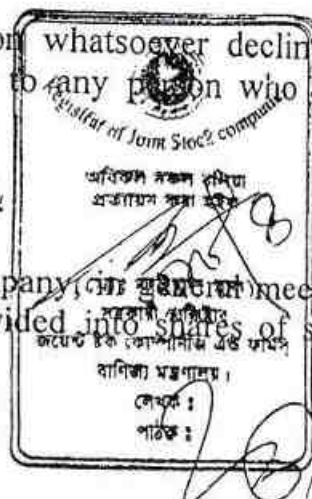 on whatsoever declin
to any person who
Registrar of Joint Stock Compani
অবিকল নকল বলিয়া
প্রত্যায়ন করা হইল
pany, in general mee
vided into shares of s
সহকারী রেজিস্ট্রার
জয়েন্ট ষ্টক কোম্পানীজ এন্ড ফার্মস
বাণিজ্য মন্ত্রণালয়।
লেখক :
পাঠক :